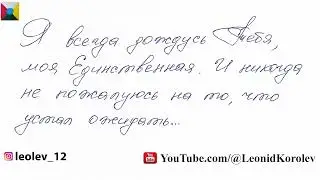 Я всегда дождусь Тебя,
моя Единственная. И никогда
не пожалуюсь на то, что
устал ожидать...
leolev_12
YouTube.com/@LeonidKorolev